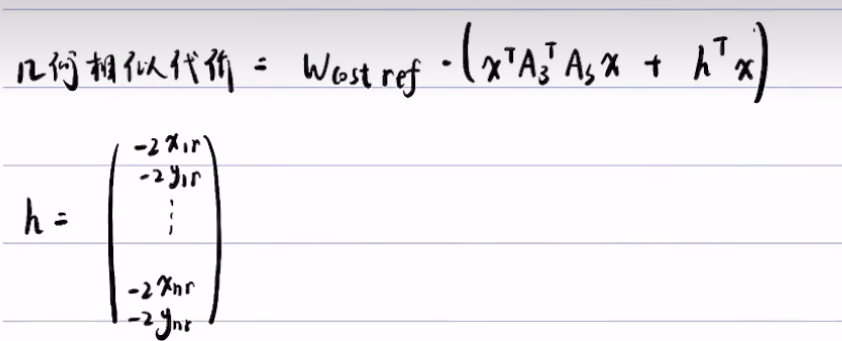 几何相似代价 = Wcost ref · (xᵀA₃ᵀA₃x + hᵀx)
h = (
-2x₁r
-2y₁r
⋮
-2xₙr
-2yₙr
)